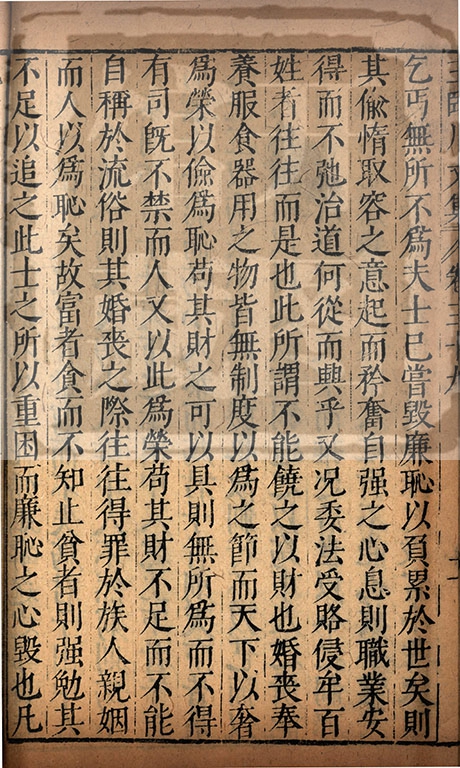 王臨川文集 卷三十九
乞丐無所不爲夫士已嘗毀廉恥以負累於世矣則
其偸惰取容之意起而矜奮自强之心息則職業安
得而不弛治道何從而興乎又况委法受賂侵牟百
姓者往往而是也此所謂不能饒之以財也婚喪奉
養服食器用之物皆無制度以爲之節而天下以奢
爲榮以儉爲恥苟其財之可以具則無所爲而不得
有司旣不禁而人又以此爲榮苟其財不足而不能
自稱於流俗則其婚喪之際往往得罪於族人親姻
而人以爲恥矣故富者貪而不知止貧者則强勉其
不足以追之此士之所以重困而廉恥之心毀也凡